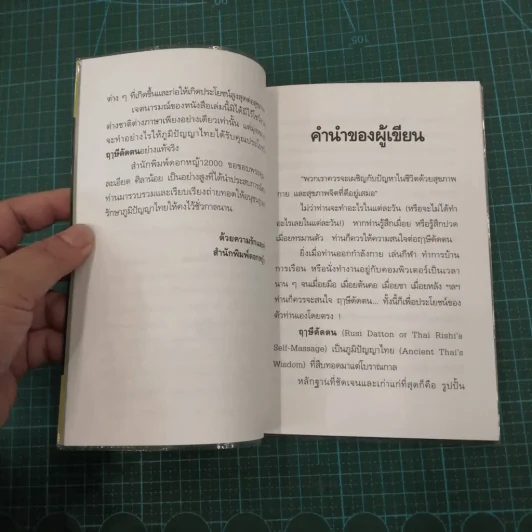 ต่าง ๆ ที่เกิดขึ้นและก่อให้เกิดประโยชน์สูงสุดต่อสุขภาพ
เจตนารมณ์ของหนังสือเล่มนี้มิได้มีไว้
ต่างชาติต่างภาษาเพียงอย่างเดียวเท่านั้น
จะทำอย่างไรให้ภูมิปัญญาไทยได้รับคุณประโยชน์
ฤๅษีดัดตนอย่างแท้จริง
สำนักพิมพ์ดอกหญ้า2000 ขอขอบคุณ
ละเอียด ศิลาน้อย เป็นอย่างสูงที่ได้นำประสบการณ์
ท่านมารวบรวมและเรียบเรียงถ่ายทอดให้
รักษาภูมิปัญญาไทยให้คงไว้ชั่วกาลนาน
ด้วยความ
สำนักพิมพ์ดอกหญ้า
คำนำของผู้เขียน
"พวกเราควรจะเผชิญกับปัญหาในชีวิตด้วยสุขภาพ
กาย และสุขภาพจิตที่ดีอยู่เสมอ"
ไม่ว่าท่านจะทำอะไรในแต่ละวัน (หรือจะไม่ได้ทำ
อะไรเลยในแต่ละวัน!) หากท่านรู้สึกเมื่อย หรือรู้สึกปวด
เมื่อยทรมานตัว ท่านก็ควรให้ความสนใจต่อฤๅษีดัดตน
ยิ่งเมื่อท่านออกกำลังกาย เล่นกีฬา ทำการบ้าน
การเรือน หรือนั่งทำงานอยู่กับคอมพิวเตอร์เป็นเวลา
นาน ๆ จนเมื่อยมือ เมื่อยต้นคอ เมื่อยขา เมื่อยหลัง ฯลฯ
ท่านก็ควรจะสนใจ ฤๅษีดัดตน... ทั้งนี้ก็เพื่อประโยชน์ของ
ตัวท่านเองโดยตรง !
ฤๅษีดัดตน (Rusi Datton or Thai Rishi's
Self-Massage) เป็นภูมิปัญญาไทย (Ancient Thai's
Wisdom) ที่สืบทอดมาแต่โบราณกาล
หลักฐานที่ชัดเจนและเก่าแก่ที่สุดก็คือ รูปปั้น